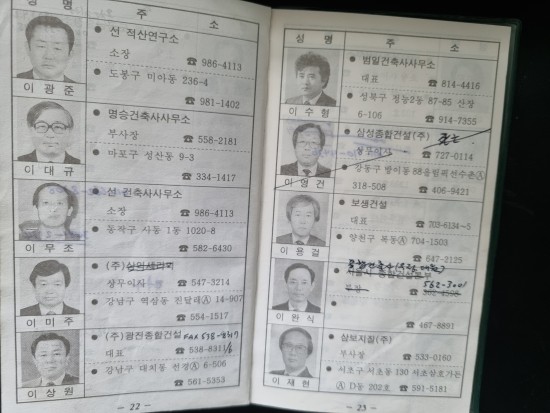 성 명
주 소
선 적산연구소
소장 ☎ 986-4113
도봉구 미아동 236-4
☎ 981-1402
이 광 준
명승건축사사무소
부사장 ☎ 558-2181
마포구 성산동 9-3
☎ 334-1417
이 대 규
선 건축사사무소
소장 ☎ 986-4113
동작구 사동 1동 1020-8
☎ 582-6430
이 무 조
(주)
상무이사 ☎ 547-3214
강남구 역삼동 진달래Ⓐ 14-907
☎ 554-1517
이 미 주
(주)광진종합건설 FAX 538-8317
대표 ☎ 538-8311/6
강남구 대치동 선경Ⓐ 6-506
☎ 561-5353
이 상 원
- 22 -
성 명
주 소
범일건축사사무소
대표 ☎ 814-4416
성북구 정능2동 87-85 산장
6-106 ☎ 914-7355
이 수 형
삼성종합건설(주)
상무이사 ☎ 727-0114
강동구 방이동 88올림픽선수촌Ⓐ
318-508 ☎ 406-9421
이 영 건
보생건설
대표 ☎ 703-6134~5
양천구 목동Ⓐ 704-1503
☎ 647-2125
이 용 걸
562-3001
부장 ☎ 562-4596
☎ 467-8891
이 원 식
삼보지질(주)
부사장 ☎ 533-0160
서초구 서초동 130 서초삼호가든
Ⓐ D동 202호 ☎ 591-5181
이 재 현
- 23 -